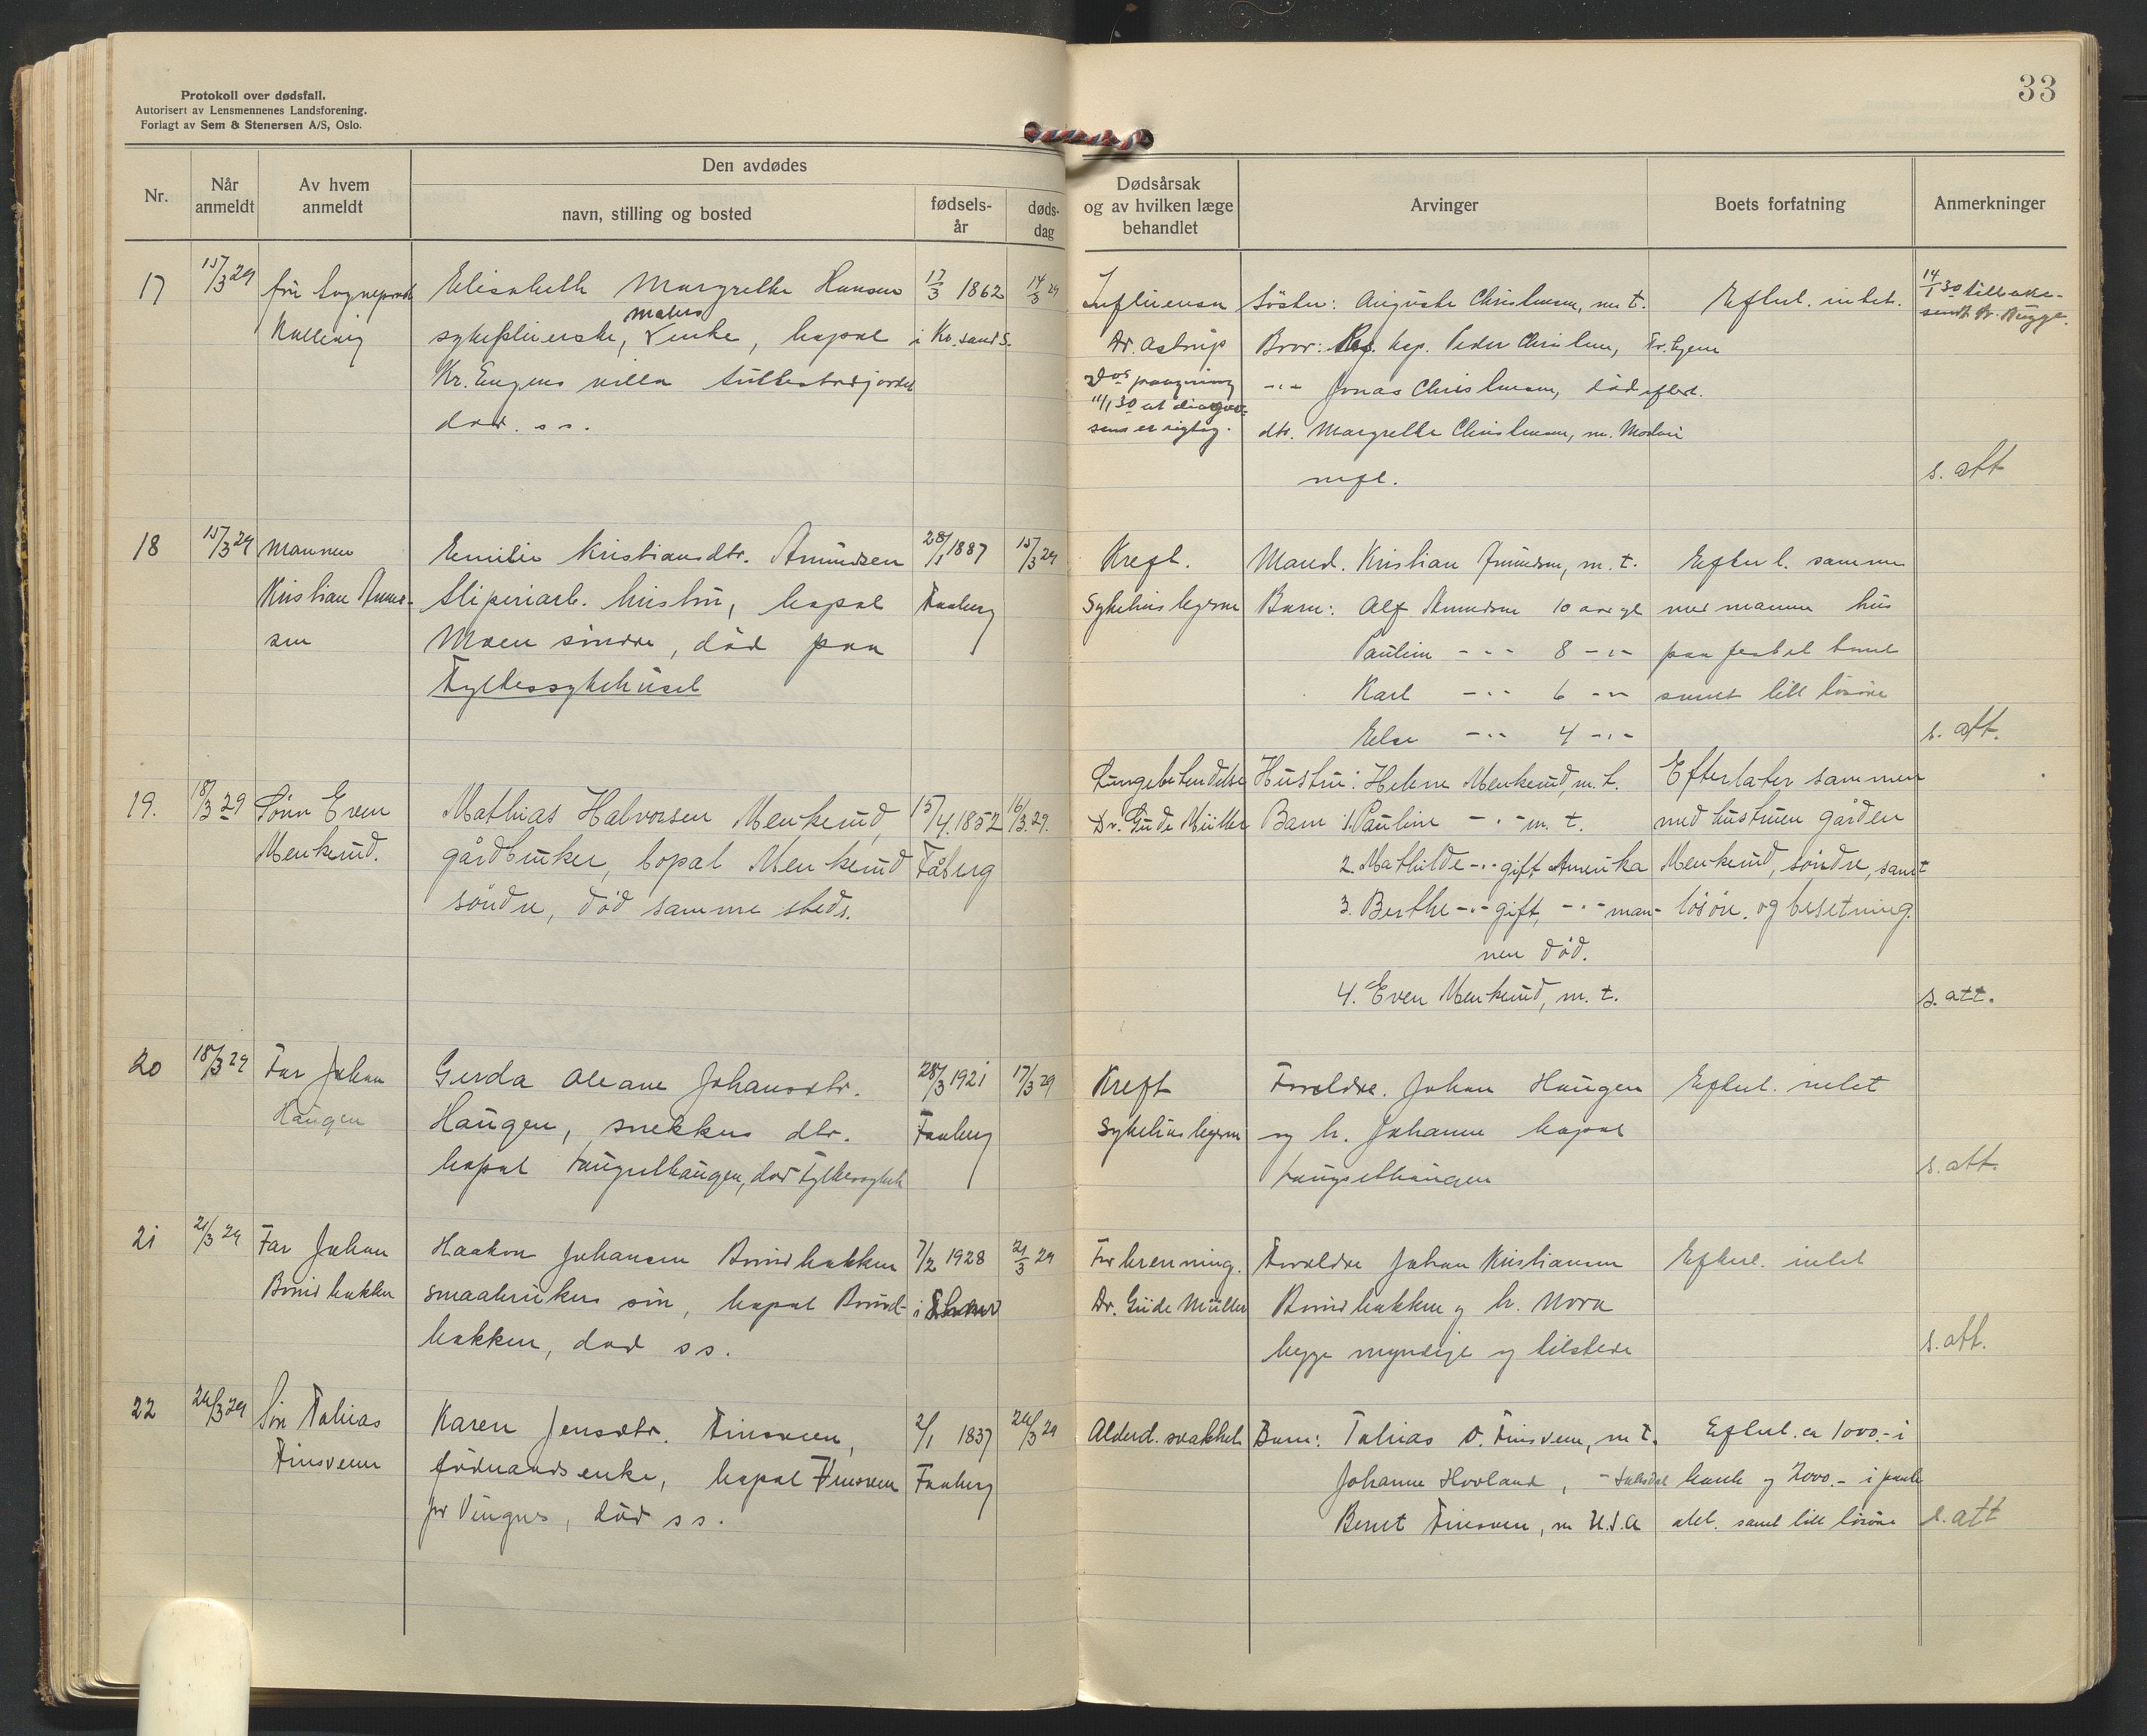 Protokoll over dødsfall.
Autorisert av Lensmennenes Landsforening.
Forlagt av Sem & Stenersen A/S, Oslo.
33
Nr.
Når anmeldt
Av hvem anmeldt
Den avdødes
navn, stilling og bosted
fødsels-år
døds-dag
Dødsårsak og av hvilken læge behandlet
Arvinger
Boets forfatning
Anmerkninger
17
15/3 29
fru Sogneprest
Elisabeth Margrethe Hansen
malers
sykepleierske, enke, bopæl
Kr. Engens villa
død. ss.
17/3 1862
i Kr.sand S.
14/3 29
Influensa
Dr. Astrup
11/1 30 at diagno-
sens er rigtig.
Søster: Auguste Christensen, m. t.
Bror: kap. Peder Christensen,
-"- Jonas Christensen, død efterl.
dtr. Margrethe Christensen,
mfl.
Efterl. intet.
14/1 30 tilbake-
sendt
s. att
18
15/3 29
Mannen
Kristian Amund-
sen
Emilie Kristiansdtr. Amundsen
sliperiarb. hustru, bopæl
Moen søndre, død paa
Fylkessykehuset
28/1 1887
Faaberg
15/3 29
Kreft.
Sykehuslegene
Mand. Kristian Amundsen, m. t.
Barn: Alf Amundsen 10 aar gl
Pauline -"- 8 -"-
Karl -"- 6 -"-
Else -"- 4 -"-
Efterl. sammen
med mannen hus
paa festet tomt
samt litt løsøre
s. att.
19.
18/3 29
Sønn Even
Menkerud.
Mathias Halvorsen Menkerud,
gårdbruker, bopæl Menkerud
søndre, død samme steds.
15/4. 1852
Fåberg
16/3. 29.
Lungebetendelse
Dr. Gude Müller
Hustru: Helene Menkerud, m. t.
Barn 1. Pauline -"- m. t.
2. Mathilde -"- gift Amerika
3. Berthe -"- gift, -"- man-
nen død.
4. Even Menkerud, m. t.
Efterlater sammen
med hustruen gården
Menkerud, søndre, samt
løsøre. og besetning.
s. att.
20
18/3 29
Far Johan
Haugen
Gerda Oleane Johansdtr.
Haugen, snekkers dtr.
bopæl død Fylkessykeh
28/3 1921
Faaberg
17/3 29
Kreft
Sykehuslegene
Foreldre. Johan Haugen
og h. Johanne bopæl
Efterl. intet
s. att.
21
21/3 29
Far Johan
Bruibakken
Haakon Johansen
smaabrukers søn, bopæl
bakken, død ss.
7/2 1928
i
21/3 29
Forbrenning.
Dr. Gude Müller
Foreldre Johan Kristiansen
og h. Nora
begge myndige og tilstede
Efterl. intet
s. att.
22
24/3 29
Søn Tobias
Finsveen
Karen Jensdtr. Finsveen,
enke, bopæl Finsveen
pr Vingnes, død ss.
2/1 1837
Faaberg
24/3 29
Alderd. svakhet
Barn: Tobias O. Finsveen, m t.
Johanne Hovland,
Bernt Finsveen, m U.S.A
Efterl. ca 1000.- i
bank og 7000.- i pante
obl. samt litt løsøre
s. att